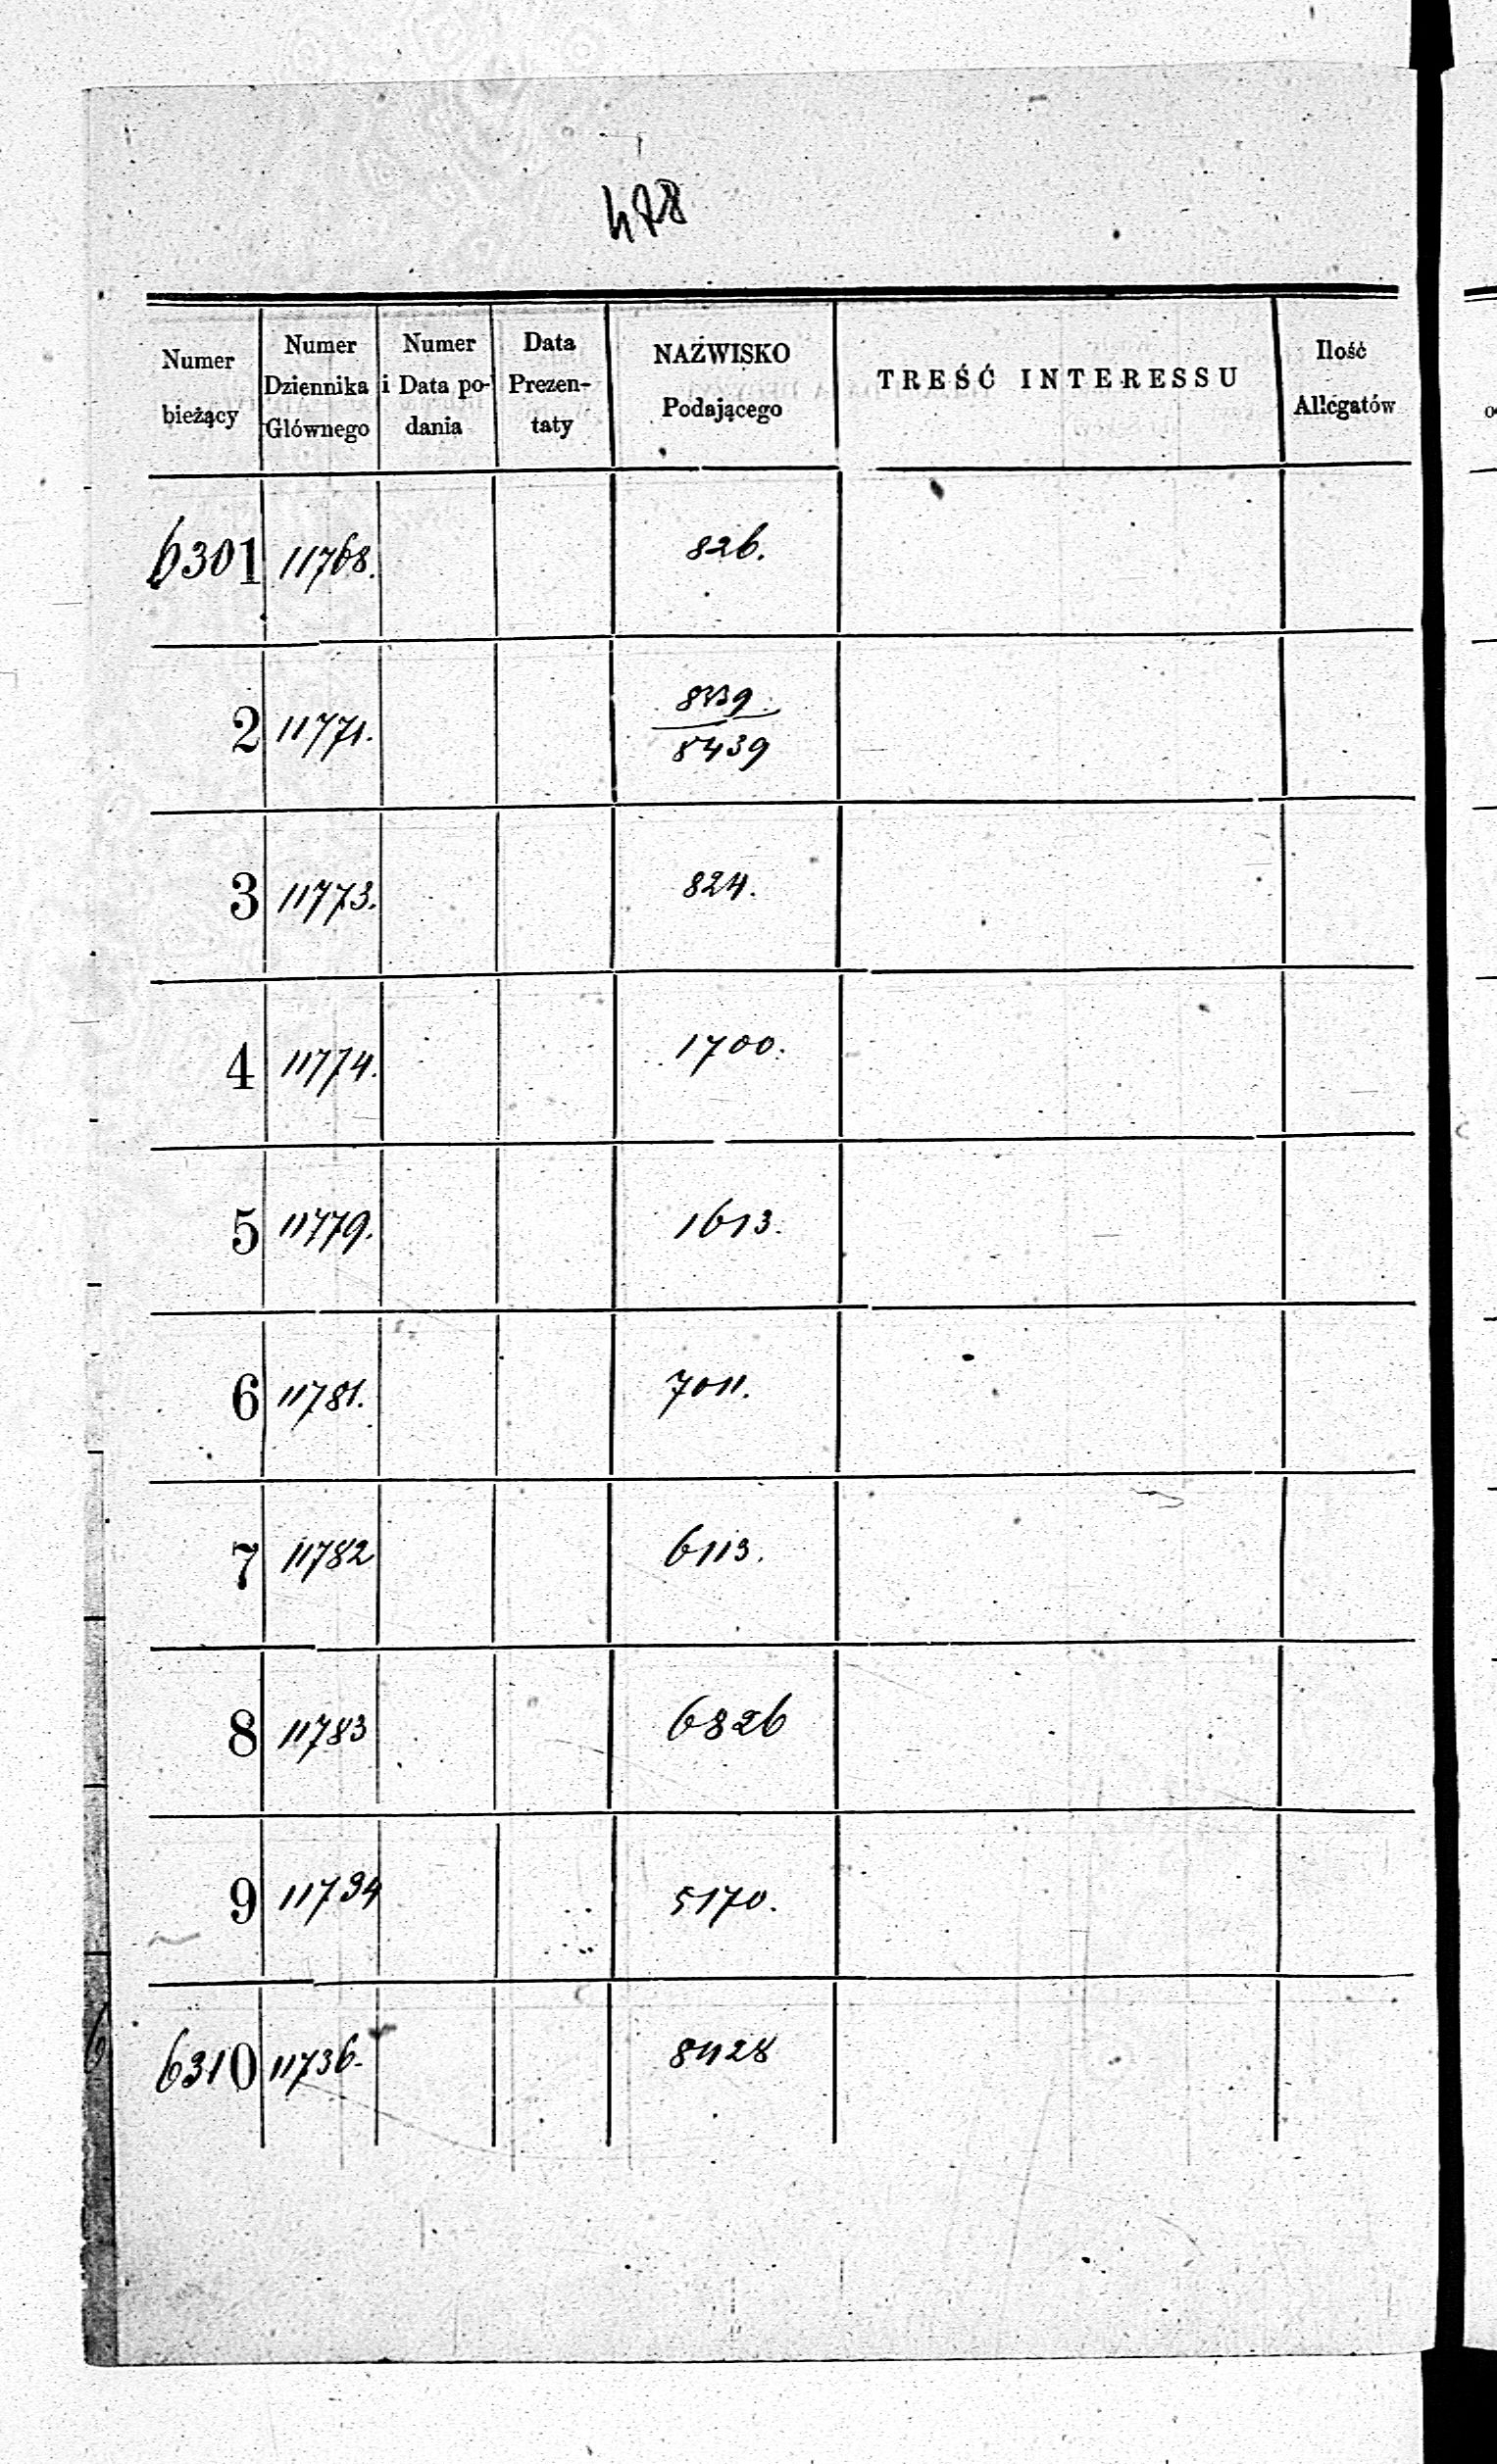 478
Numer bieżący
Numer Dziennika Głównego
Numer i Data podania
Data Prezentaty
NAZWISKO Podającego
TREŚĆ INTERESSU
Ilość Allegatów
6301 11768. 826.
2 11771. 8339
8439
3 11773. 824.
4 11774. 1700.
5 11779. 1613.
6 11781. 7011.
7 11782 6113.
8 11783 6826
9 11734 5170.
6310 11736. 8428